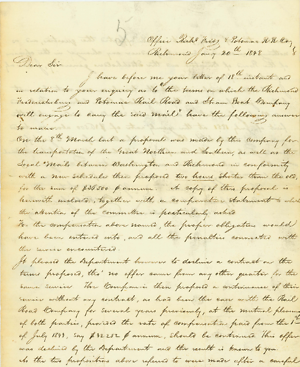 5
Office Richd Fredg & Potomac R. R. Co
Richmond Jany 20th 1848
Dear Sir
I have before me your letter of 18th instant and
in relation to your enquiry as to the terms on which the Richmond
Fredericksburg and Potomac Rail Road and Steam Boat Company
will engage to carry the said Mails I have the following answer
to make.
On the 8th March last a proposal was made by this Company for
the transportation of the Great Northern and Southern, as well as the
Local Mails between Washington and Richmond in conformity
with a new schedule then proposed two hours shorter than the old,
for the sum of $ annum. A copy of this proposal is
herewith enclosed, together with a comparative statement to which
the attention of the committee is particularly asked.
For the compensation above named, the proper obligation would
have been entered into, and all the penalties connected with
the service encountered.
It pleased the Department however to decline a contract on the
terms proposed, tho' no offer came from any other quarter for the
same service. The Company then proposed a continuance of their
service without any contract, as had been the case with the Rail
Road Company for several years previously, at the mutual pleasure
of both parties, provided the rate of compensation paid from the 1st
of July 1843, say $ annum, should be continued. This offer
was declined by the Department and the result is known to you.
As the two propositions above referred to were made after a careful